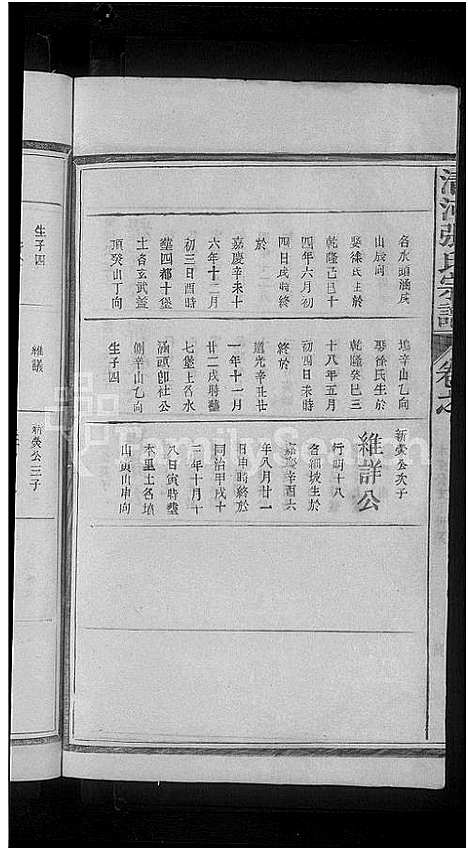 清河張氏宗譜
卷之
名水頭涵辰
山辰向
娶徐氏生於
乾隆己巳十
四年六月初
四日戌時終
於
嘉慶辛未十
六年十二月
初三日酉時
葬四都十堡
土名玄武蓋
頂癸山丁向
塢辛山乙向
娶徐氏生於
乾隆癸巳三
十八年五月
初四日未時
終於
道光辛丑廿
一年十一月
廿二戌時葬
七堡上名水
涵頭師社公
側辛山乙向
生子四
新奐公次子
維詳公
行明十八
名細坡生於
嘉慶辛酉六
年八月廿一
日申時終於
同治甲戌十
三年十月十
八日寅時葬
本里土名墳
山頭山申向
生子四
維議
新奐公三子
FamilySearch